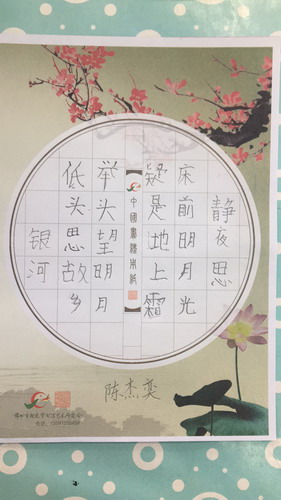 静夜思
床前明月光
疑是地上霜
举头望明月
低头思故乡
银河
陈杰奕